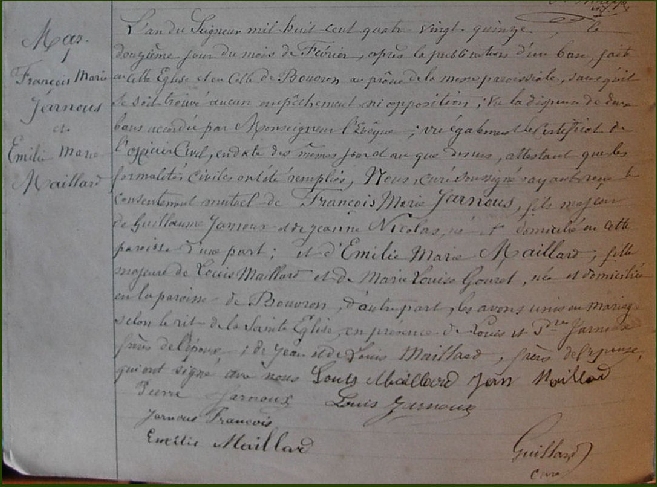 Mar.
François Marie
Jarnoux
et
Emilie Marie
Maillard
L'an du Seigneur mil huit cent quatre vingt quinze, le
douzième jour du mois de Février, après la publication d'un ban fait
en cette Eglise et en celle de Bouvron au prône de la messe paroissiale, sans qu'il
se soit trouvé aucun empêchement ni opposition; Vu la dispense de deux
bans accordée par Monseigneur l'Evêque; vu également le certificat de
l'officier Civil, en date des mêmes jour et an que dessus, attestant que les
formalités civiles ont été remplies, Nous, curé soussigné ayant reçu le
consentement mutuel de François Marie Jarnoux, fils majeur
de Guillaume Jarnoux et de Jeanne Nicolas, né et domicilié en cette
paroisse d'une part; et d'Emilie Marie Maillard, fille
majeure de Louis Maillard et de Marie Louise Gouret, née et domiciliée
en la paroisse de Bouvron, d'autre part, les avons unis en mariage
selon le rit de la Sainte Eglise, en présence de Louis et Pre Jarnoux
frères de l'époux; de Jean et de Louis Maillard, frères de l'épouse,
qui ont signé avec nous Louis Maillard Jean Maillard
Pierre Jarnoux Louis Jarnoux
Jarnoux François
Emilie Maillard Guillard
curé